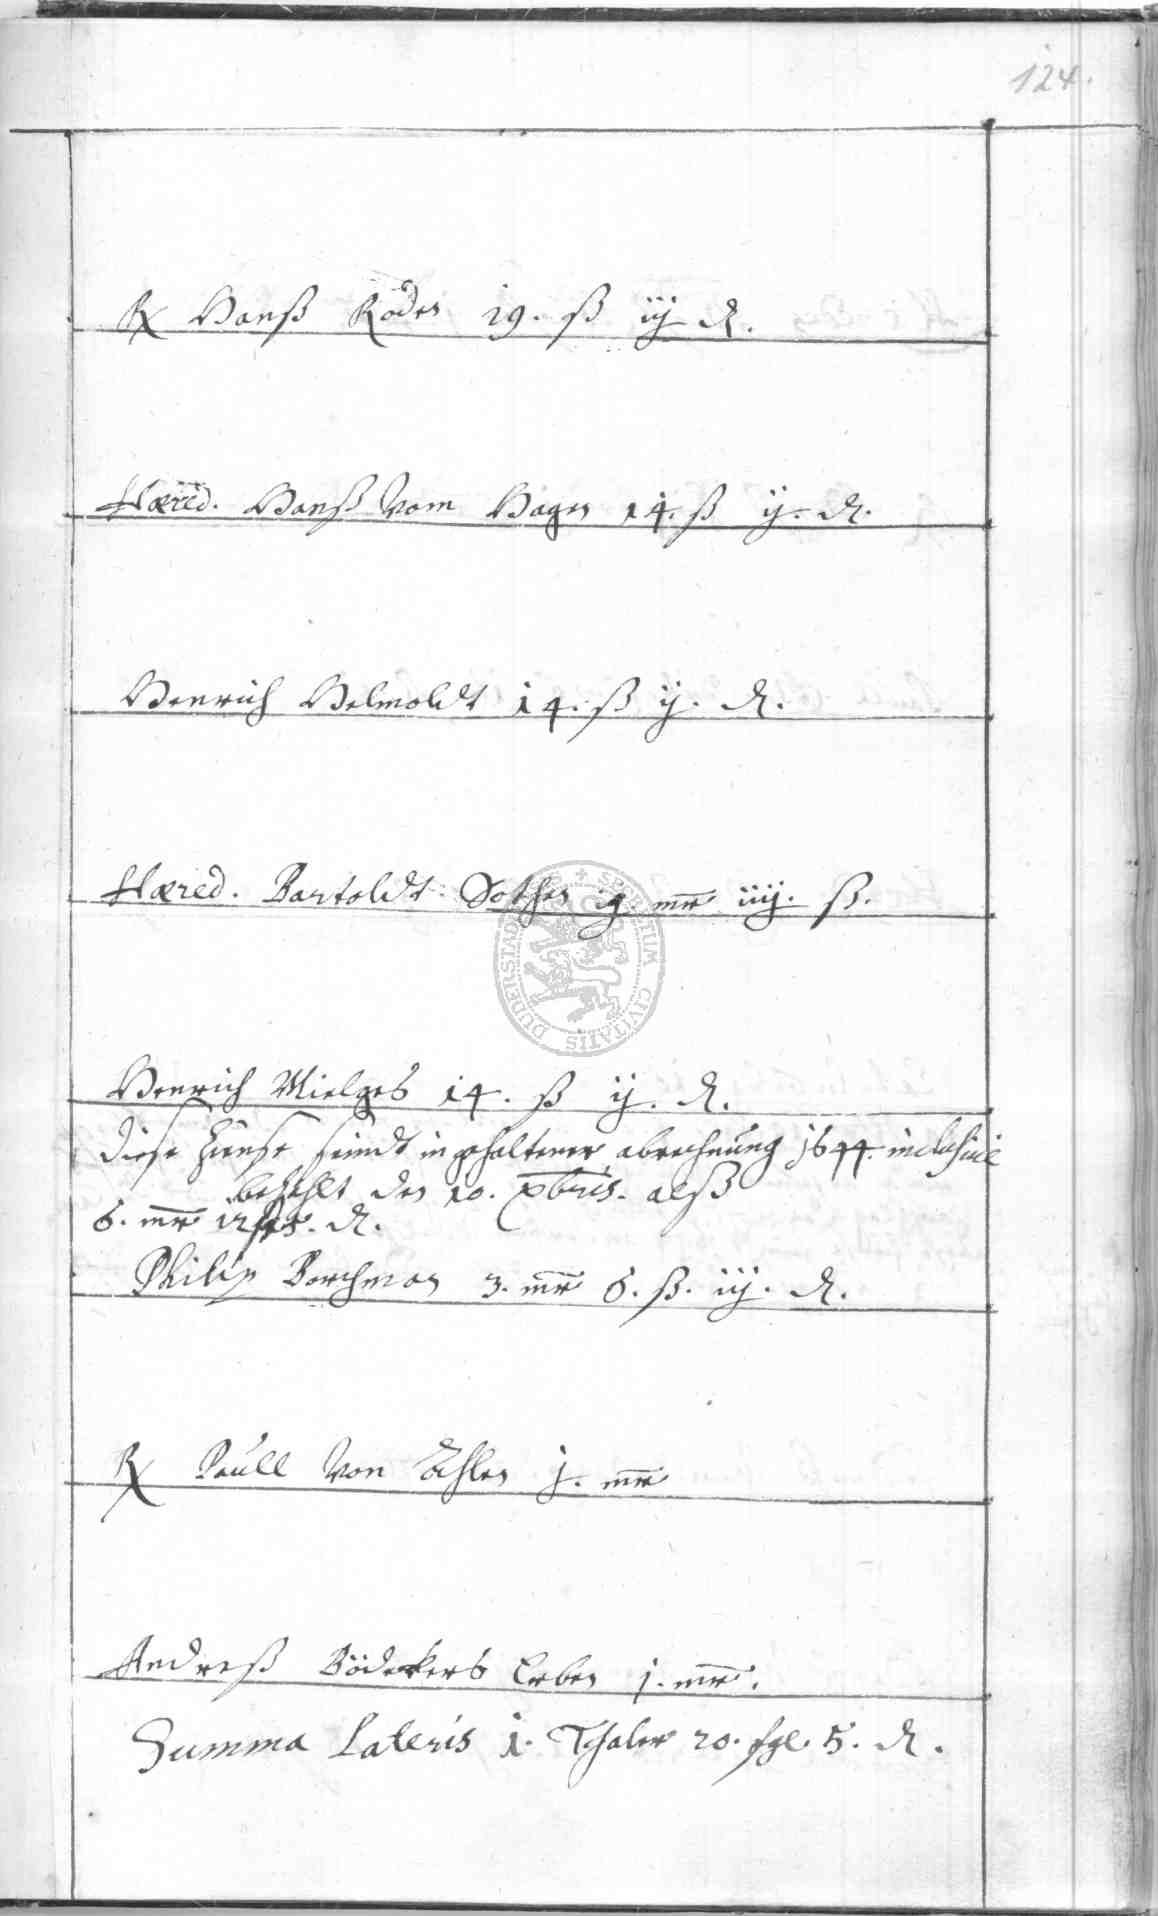 124.
Rx Hanß Roden 19. ß iij d.
Hæred. Hanß Vom Hagen 14. ß ij. d.
Henrich Helmoldt 14. ß ij. d.
Hæred. Bartoldt Sothen 19. mr iiij. ß.
DUDERSTAD SECRETUM CIVITATIS
Henrich Mielges 14. ß ij. d.
diese Zinse seindt in gehaltener abrechnung 1644. inclusive
bezahlt den 10. xbris. alß
6. mr d.
Philip Borchman 3. mr 6. ß. iij. d.
Rx Paull Von Ahlen j. mr
Andreß Bödekers Erben j. mr.
Summa Lateris 1. Thaler 20. sgl. 5. d.